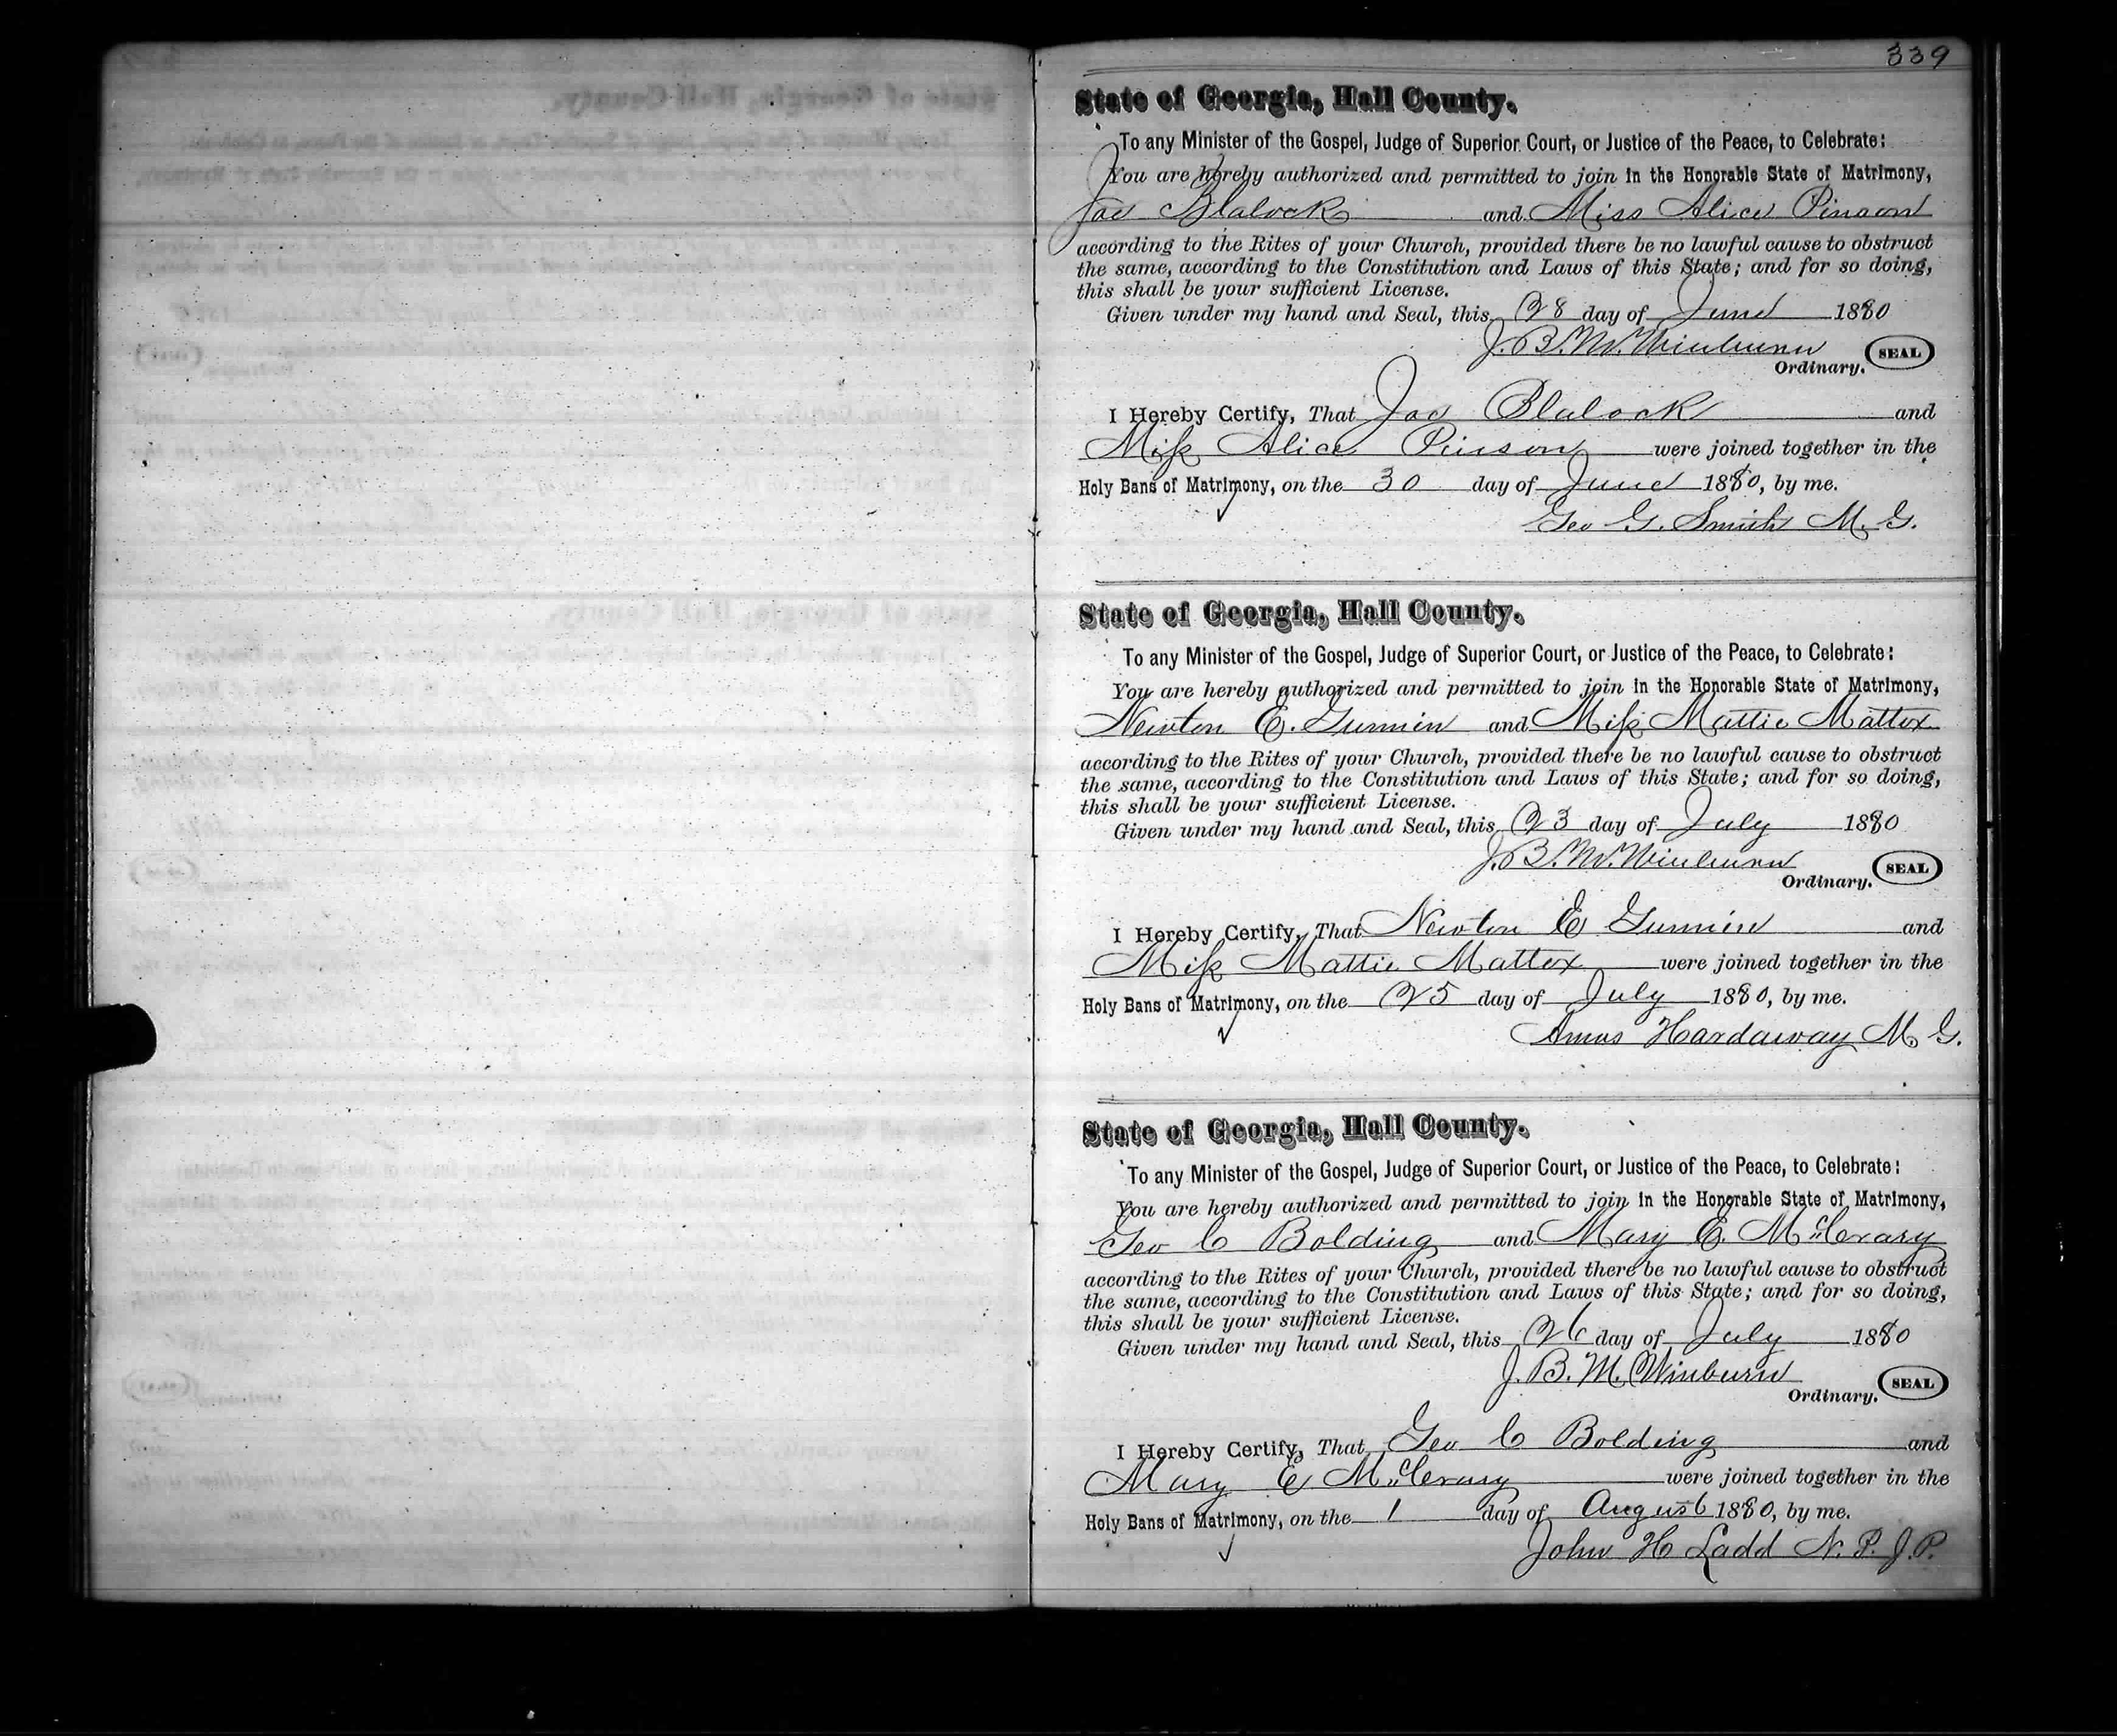 339
State of Georgia, Hall County.
To any Minister of the Gospel, Judge of Superior Court, or Justice of the Peace, to Celebrate:
You are hereby authorized and permitted to join in the Honorable State of Matrimony,
Jas Blalock and Miss Alice Pinson
according to the Rites of your Church, provided there be no lawful cause to obstruct
the same, according to the Constitution and Laws of this State; and for so doing,
this shall be your sufficient License.
Given under my hand and Seal, this 28 day of June 1880
J. B. M. Winburn SEAL
Ordinary.
I Hereby Certify, That Jas Blalock and
Miss Alice Pinson were joined together in the
Holy Bans of Matrimony, on the 30 day of June 1880, by me.
Geo G. Smith M. G.
State of Georgia, Hall County.
To any Minister of the Gospel, Judge of Superior Court, or Justice of the Peace, to Celebrate:
You are hereby authorized and permitted to join in the Honorable State of Matrimony,
Newton E. Gunnin and Miss Mattie Mattox
according to the Rites of your Church, provided there be no lawful cause to obstruct
the same, according to the Constitution and Laws of this State; and for so doing,
this shall be your sufficient License.
Given under my hand and Seal, this 23 day of July 1880
J. B. M. Winburn SEAL
Ordinary.
I Hereby Certify, That Newton E Gunnin and
Miss Mattie Mattox were joined together in the
Holy Bans of Matrimony, on the 25 day of July 1880, by me.
Amos Hardaway M. G.
State of Georgia, Hall County.
To any Minister of the Gospel, Judge of Superior Court, or Justice of the Peace, to Celebrate:
You are hereby authorized and permitted to join in the Honorable State of Matrimony,
Geo C Bolding and Mary E. McCrary
according to the Rites of your Church, provided there be no lawful cause to obstruct
the same, according to the Constitution and Laws of this State; and for so doing,
this shall be your sufficient License.
Given under my hand and Seal, this 26 day of July 1880
J. B. M. Winburn SEAL
Ordinary.
I Hereby Certify, That Geo C Bolding and
Mary E McCrary were joined together in the
Holy Bans of Matrimony, on the 1 day of August 1880, by me.
John H Ladd N. P. J. P.